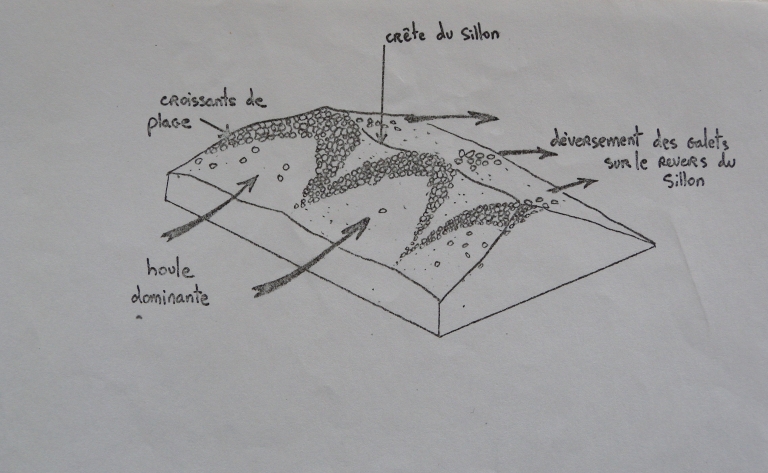 crête du sillon
croissants de
plage
déversement des galets
sur le revers du
sillon
houle
dominante